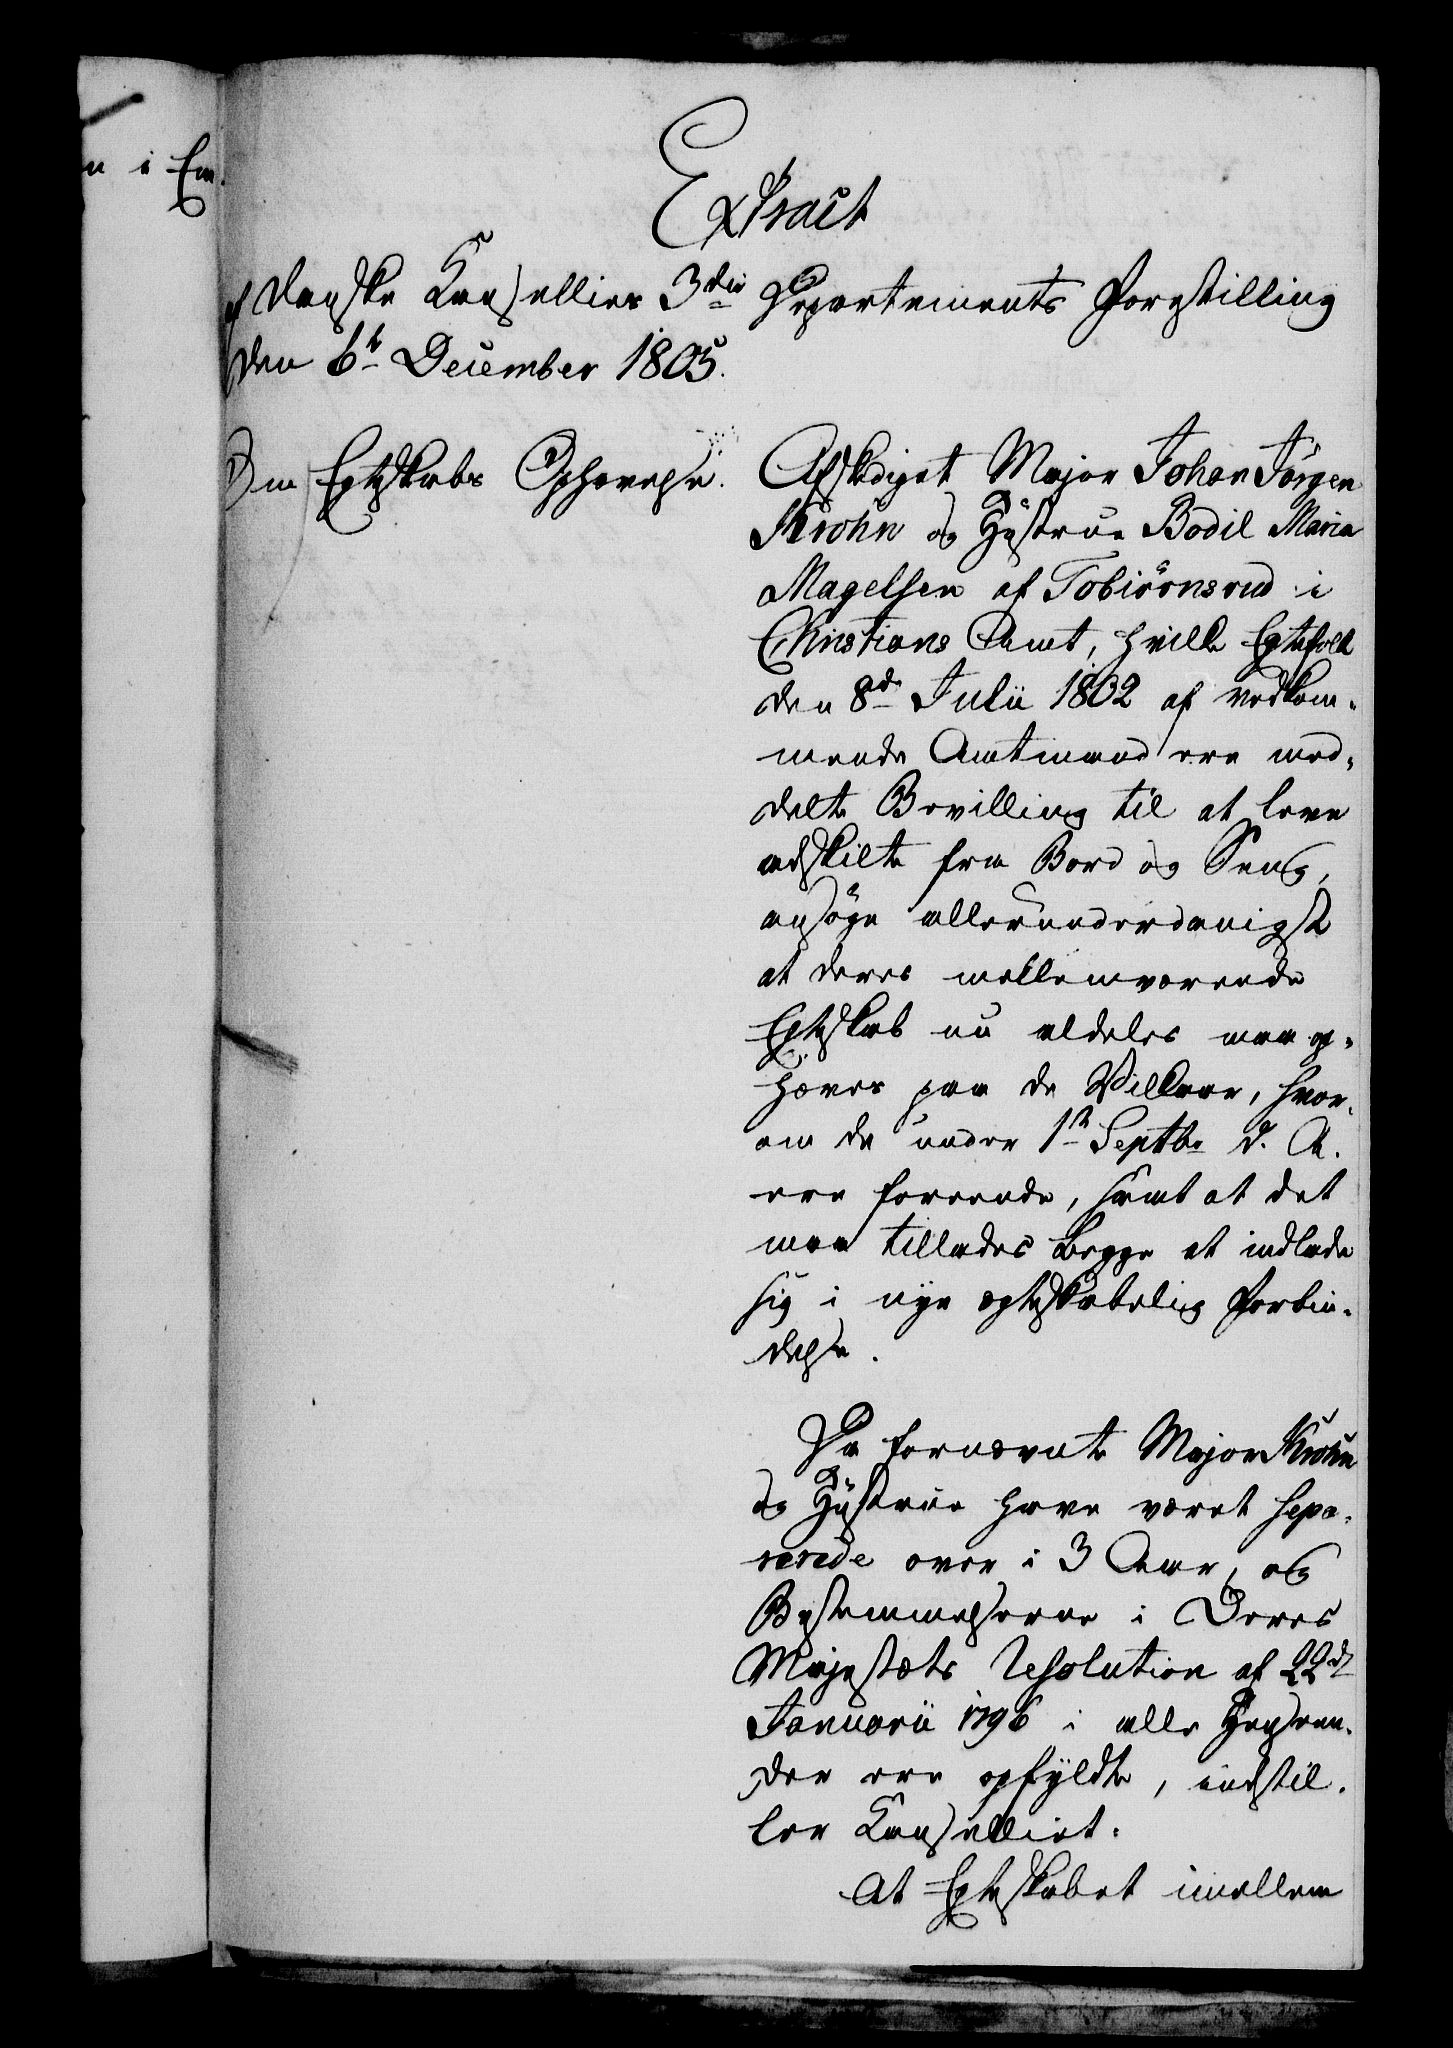 n i Em.
Extract
af danske Kancelliets 3die Departements Forestilling
den 6te December 1805.
Om Egteskabs Ophævelse.
Afskediget Major Johan Jörgen
Krohn og Hustrue Bodil Maria
Magelsen af Tobiörnsrud i
Christians Amt, hvilke Egtefolk
den 8de Julii 1802 af vedkom-
mende Amtmand ere med-
delte Bevilling til at leve
adskilte fra Bord og Seng,
ansöge allerunderdanigst
at deres mellemværende
Egteskab nu aldeles maa op-
hæves paa de Vilkaar, hvor-
om de under 1ste Septbr d. A.
ere foreenede, samt at det
maa tillades begge at indlade
sig i nye ægteskabelig Forbin-
delse.
Da fornævnte Major Krohn
og Hustrue have været sepa-
rerede over i 3 Aar, og
Bestemmelserne i Deres
Majestæts Resolution af 22de
Januarii 1796 i alle Henseen-
der ere opfyldte, indstil-
ler Kancelliet:
At Egteskabet imellem